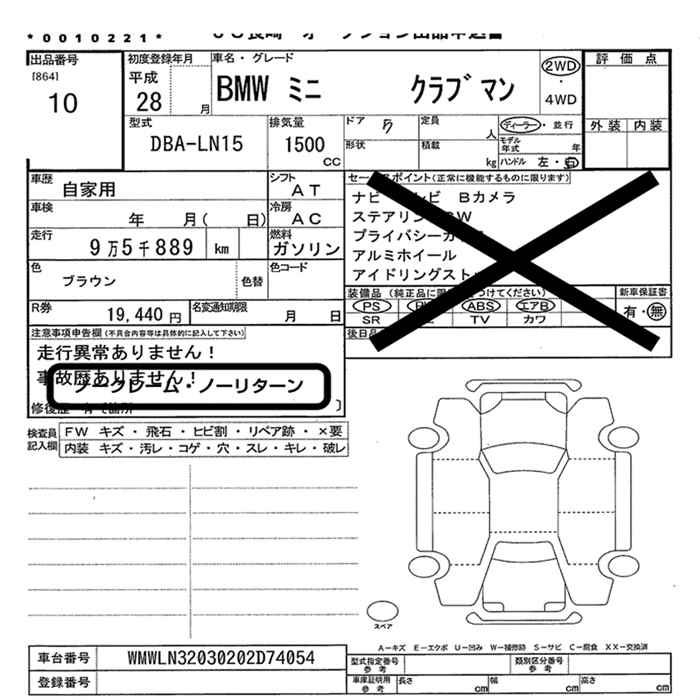 *0010221*
ＪＵ長崎 オークション出品申込書
出品番号
[864]
10
初度登録年月
平成
28 月
車名・グレード
BMW ミニ クラブマン
2WD
・
4WD
評価点
外装 内装
型式
DBA-LN15
排気量
1500
CC
ドア 5
形状
定員
人
積載
kg
ディーラー・並行
モデル年式 年
ハンドル 左・右
車歴 自家用
シフト
AT
車検
年 月( 日)
冷房
AC
走行
9万5千889 km
燃料
ガソリン
色
ブラウン
色替
色コード
R券
19,440 円
名変通知期限
月 日
セールスポイント(正常に機能するものに限ります)
ナビ テレビ Bカメラ
ステアリングSW
プライバシーガラス
アルミホイール
アイドリングストップ
装備品 (純正品に限り○をつけてください)
PS PW ABS エアB
SR TV カワ
新車保証書
有・無
後日品
注意事項申告欄(不具合内容等は具体的に記入して下さい)
走行異常ありません！
事故歴ありません！
ノークレーム・ノーリターン
修復歴 有で箇所 〕
検査員記入欄
FW キズ・飛石・ヒビ割・リペア跡・×要
内装 キズ・汚レ・コゲ・穴・スレ・キレ・破レ
スペア
A－キズ E－エクボ U－凹み W－補修跡 S－サビ C－腐食 XX－交換済
車台番号 WMWLN32030202D74054
登録番号
型式指定番号
参考
類別区分番号
参考
車庫証明用
参考
長さ cm
幅 cm
高さ cm